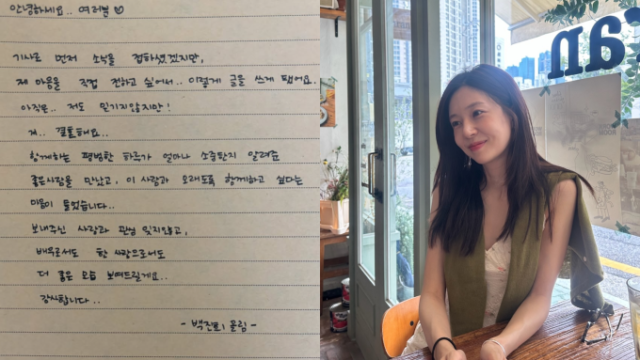 안녕하세요.. 여러분 ♡
기사로 먼저 소식을 접하셨겠지만,
제 마음을 직접 전하고 싶어서.. 이렇게 글을 쓰게 됐어요.
아직은.. 저도 믿기지않지만!
저.. 결혼해요..
함께하는 평범한 하루가 얼마나 소중한지 알려준
좋은사람을 만났고, 이 사람과 오래도록 함께하고 싶다는
마음이 들었습니다..
보내주신 사랑과 관심 잊지않고,
배우로서도 한 사람으로서도
더 좋은 모습 보여드릴게요..
감사합니다..
- 백진희 올림 -
ran